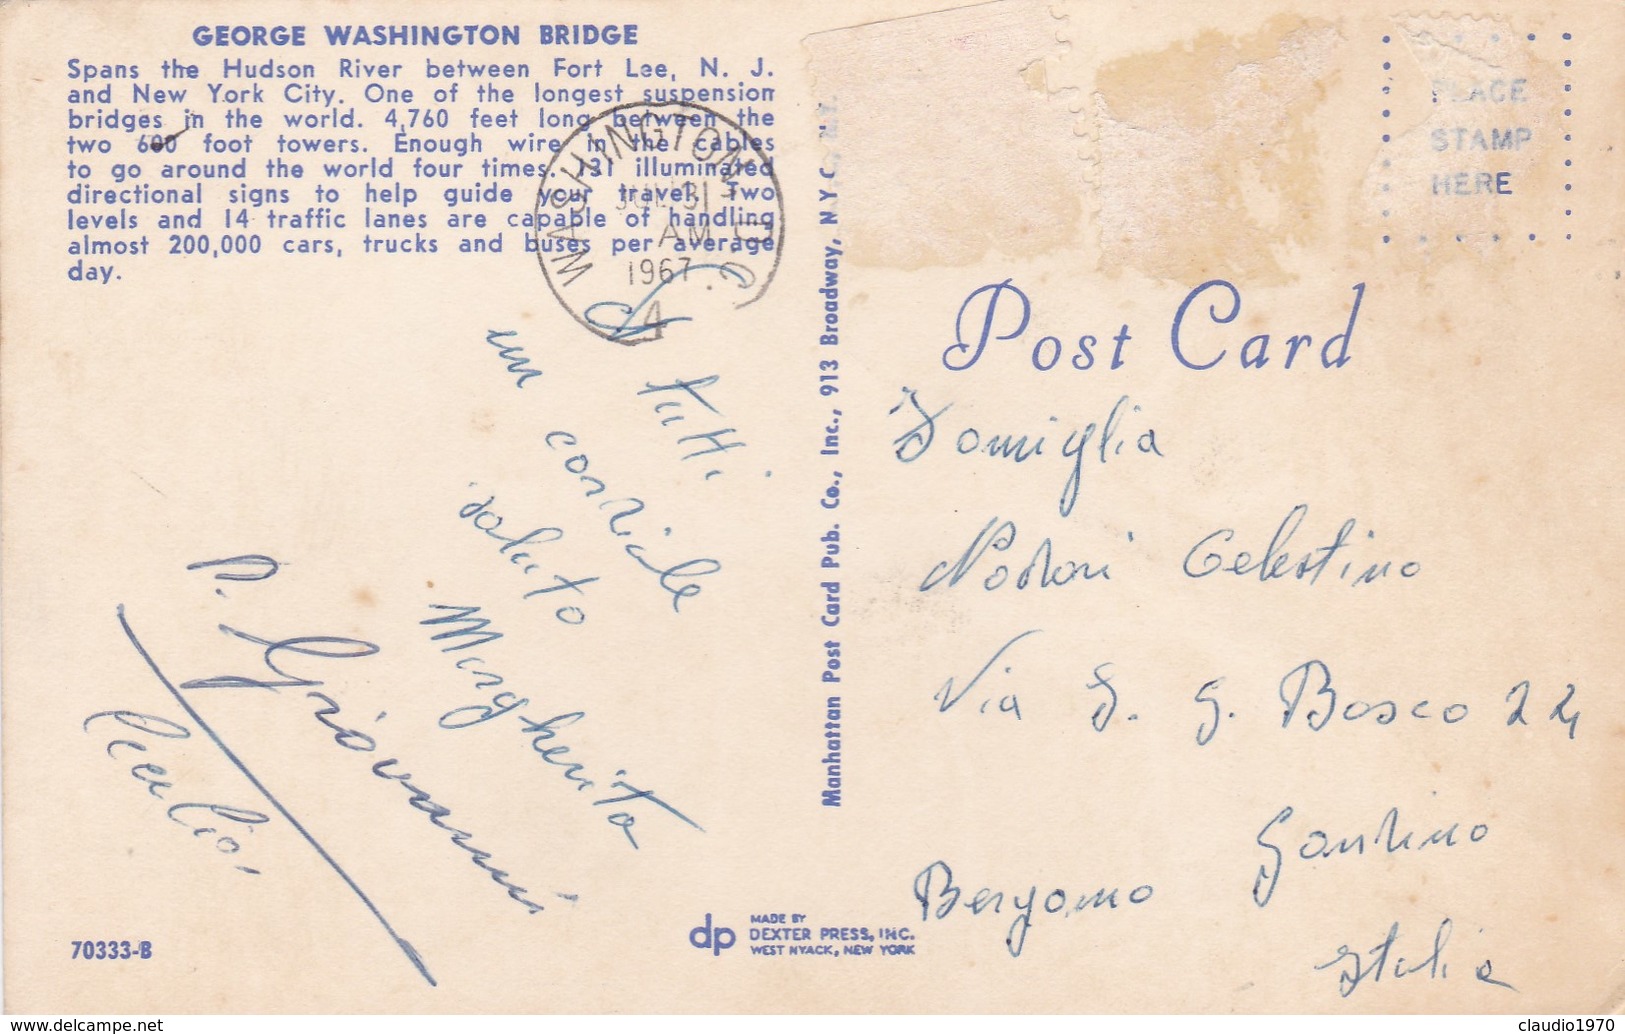 GEORGE WASHINGTON BRIDGE
Spans the Hudson River between Fort Lee, N. J.
and New York City. One of the longest suspension
bridges in the world. 4,760 feet long between the
two 600 foot towers. Enough wire in the cables
to go around the world four times. 131 illuminated
directional signs to help guide your travel. Two
levels and 14 traffic lanes are capable of handling
almost 200,000 cars, trucks and buses per average
day.
WASHINGTON, D.C.
JUL 31
AM
1967
4
A tutti
un cordiale
saluto
Margherita
P. Giovanni
70333-B
dp
MADE BY
DEXTER PRESS, INC.
WEST NYACK, NEW YORK
Manhattan Post Card Pub. Co., Inc., 913 Broadway, N.Y.C., N.Y.
PLACE
STAMP
HERE
Post Card
Famiglia
Celestino
Via S. G. Bosco 24
Gandino
Bergamo
Italia
claudio1970